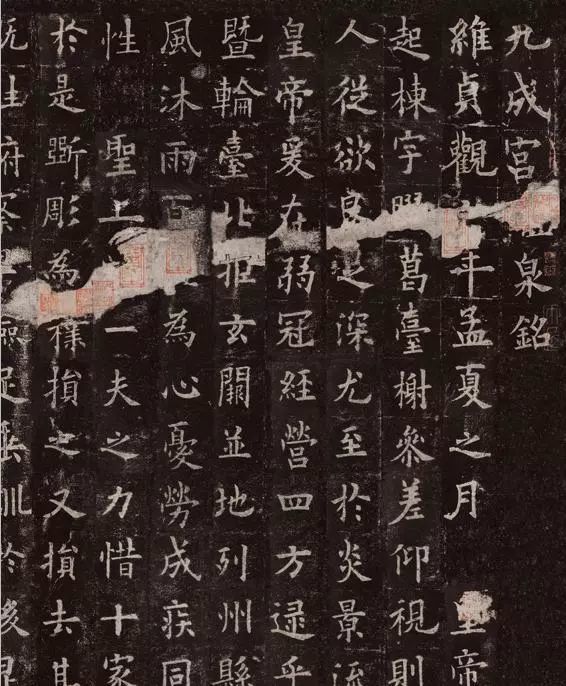 九成宮泉銘
維貞觀年孟夏之月 皇帝
起棟宇膠葛臺榭參差仰視則
人從欲良足深尤至於炎景流
皇帝爰在弱冠經營四方逮乎
暨輪臺北拒玄闕並地列州縣
風沐雨百為心憂勞成疾同
性 聖上一夫之力惜十家
於是斲彫為樸損之又損去其
往府察卑儉足垂訓於後昆